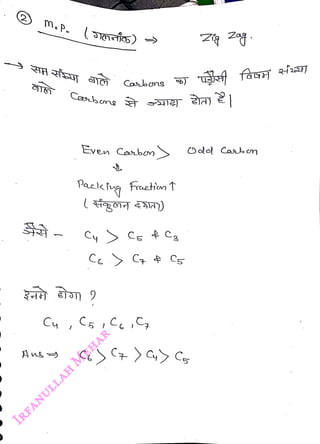 ② M.P. (गलनांक) ⇒ Zig Zag.
→ सम संख्या वाले Carbons का पड़ौसी विषम संख्या
वाले Carbons से ज्यादा होता है|
Even Carbon > Odd Carbon
⇓
Packing Fraction ↑
(संकुलन दक्षता)
जैसे - C₄ > C₅ & C₃
C₆ > C₇ & C₅
इनमे होगा ?
C₄ , C₅ , C₆ , C₇
Ans ⇒ C₆ > C₇ > C₄ > C₅
IRFANULLAH MAHAR